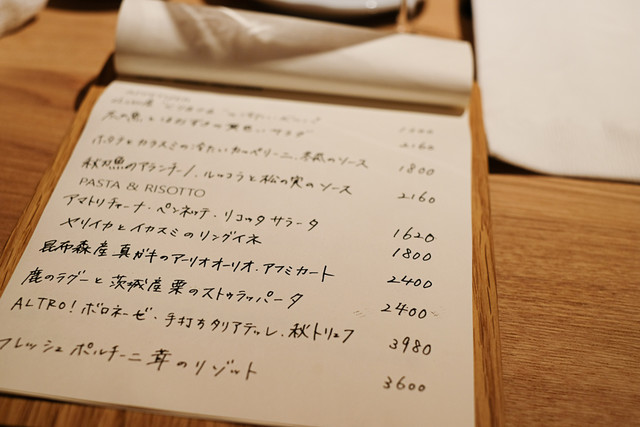 1800
秋刀魚のアランチーノ、ルッコラと松の実のソース 2160
PASTA & RISOTTO
アマトリチャーナ・ペンネッテ・リコッタサラータ 1620
ヤリイカとイカスミのリングイネ 1800
昆布森産真ガキのアーリオオーリオ・アフミカート 2400
鹿のラグーと茨城産栗のストゥラッパータ 2400
ALTRO! ボロネーゼ・手打ちタリアテッレ、秋トリュフ 3980
フレッシュポルチーニ茸のリゾット 3600